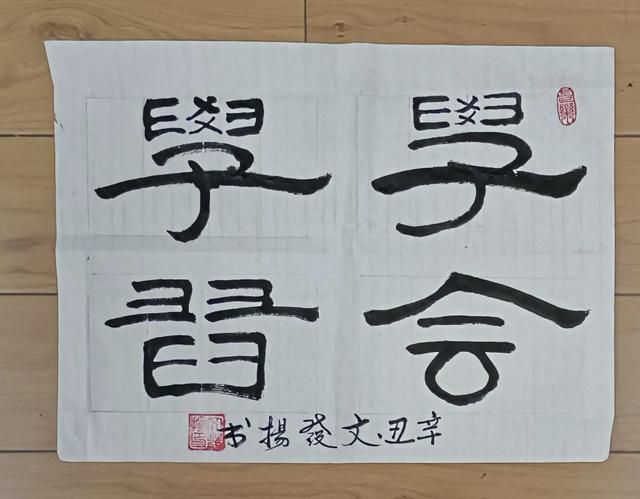 學会
學習
辛丑.文發揚书